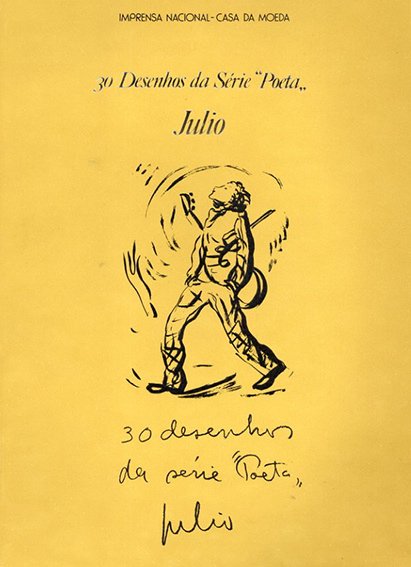 IMPRENSA NACIONAL-CASA DA MOEDA
30 Desenhos da Série "Poeta„
Julio
30 desenhos
da série "Poeta„
julio